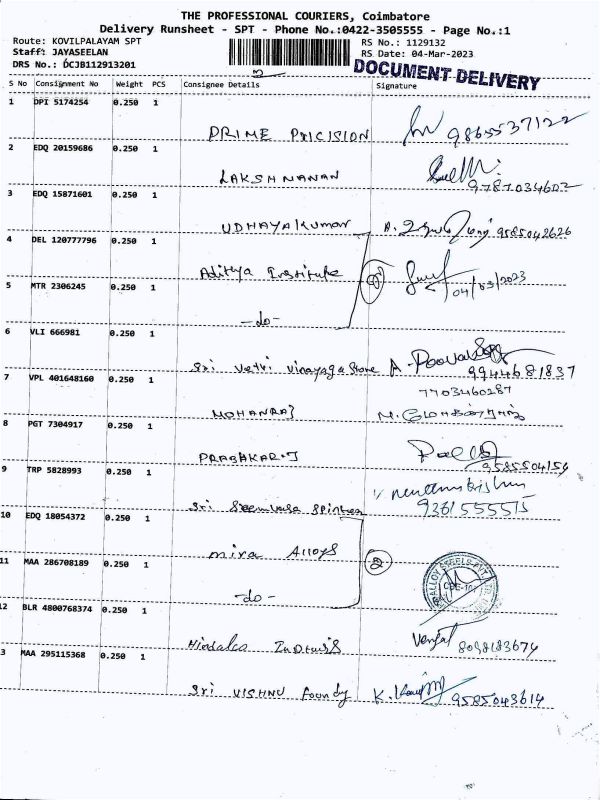 THE PROFESSIONAL COURIERS, Coimbatore
Delivery Runsheet - SPT - Phone No.:0422-3505555 - Page No.:1
Route: KOVILPALAYAM SPT RS No.: 1129132
Staff: JAYASEELAN RS Date: 04-Mar-2023
DRS No.: DCJB112913201 DOCUMENT DELIVERY
S No Consignment No Weight PCS Consignee Details Signature
1 DPI 5174254 0.250 1
PRIME PRICISION 9865537122
2 EDQ 20159686 0.250 1
LAKSHMANAN 9787034602
3 EDQ 15871601 0.250 1
UDHAYAKUMAR 9585042626
4 DEL 120777796 0.250 1
Aditya Institute 04/03/2023
5 MTR 2306245 0.250 1
-do-
6 VLI 666981 0.250 1
Sri Vetri Vinayaga Store A. 9944681837
7 VPL 401648160 0.250 1 7703460287
MOHANRAJ
8 PGT 7304917 0.250 1
PRABAKAR.J 9585504154
9 TRP 5828993 0.250 1
Sri 9361555515
10 EDQ 18054372 0.250 1
Mira Alloys
11 MAA 286708189 0.250 1 2
-do-
12 BLR 4800768374 0.250 1
Hindalco 8098183674
3 MAA 295115368 0.250 1
Sri VISHNU Foundy 9585043614